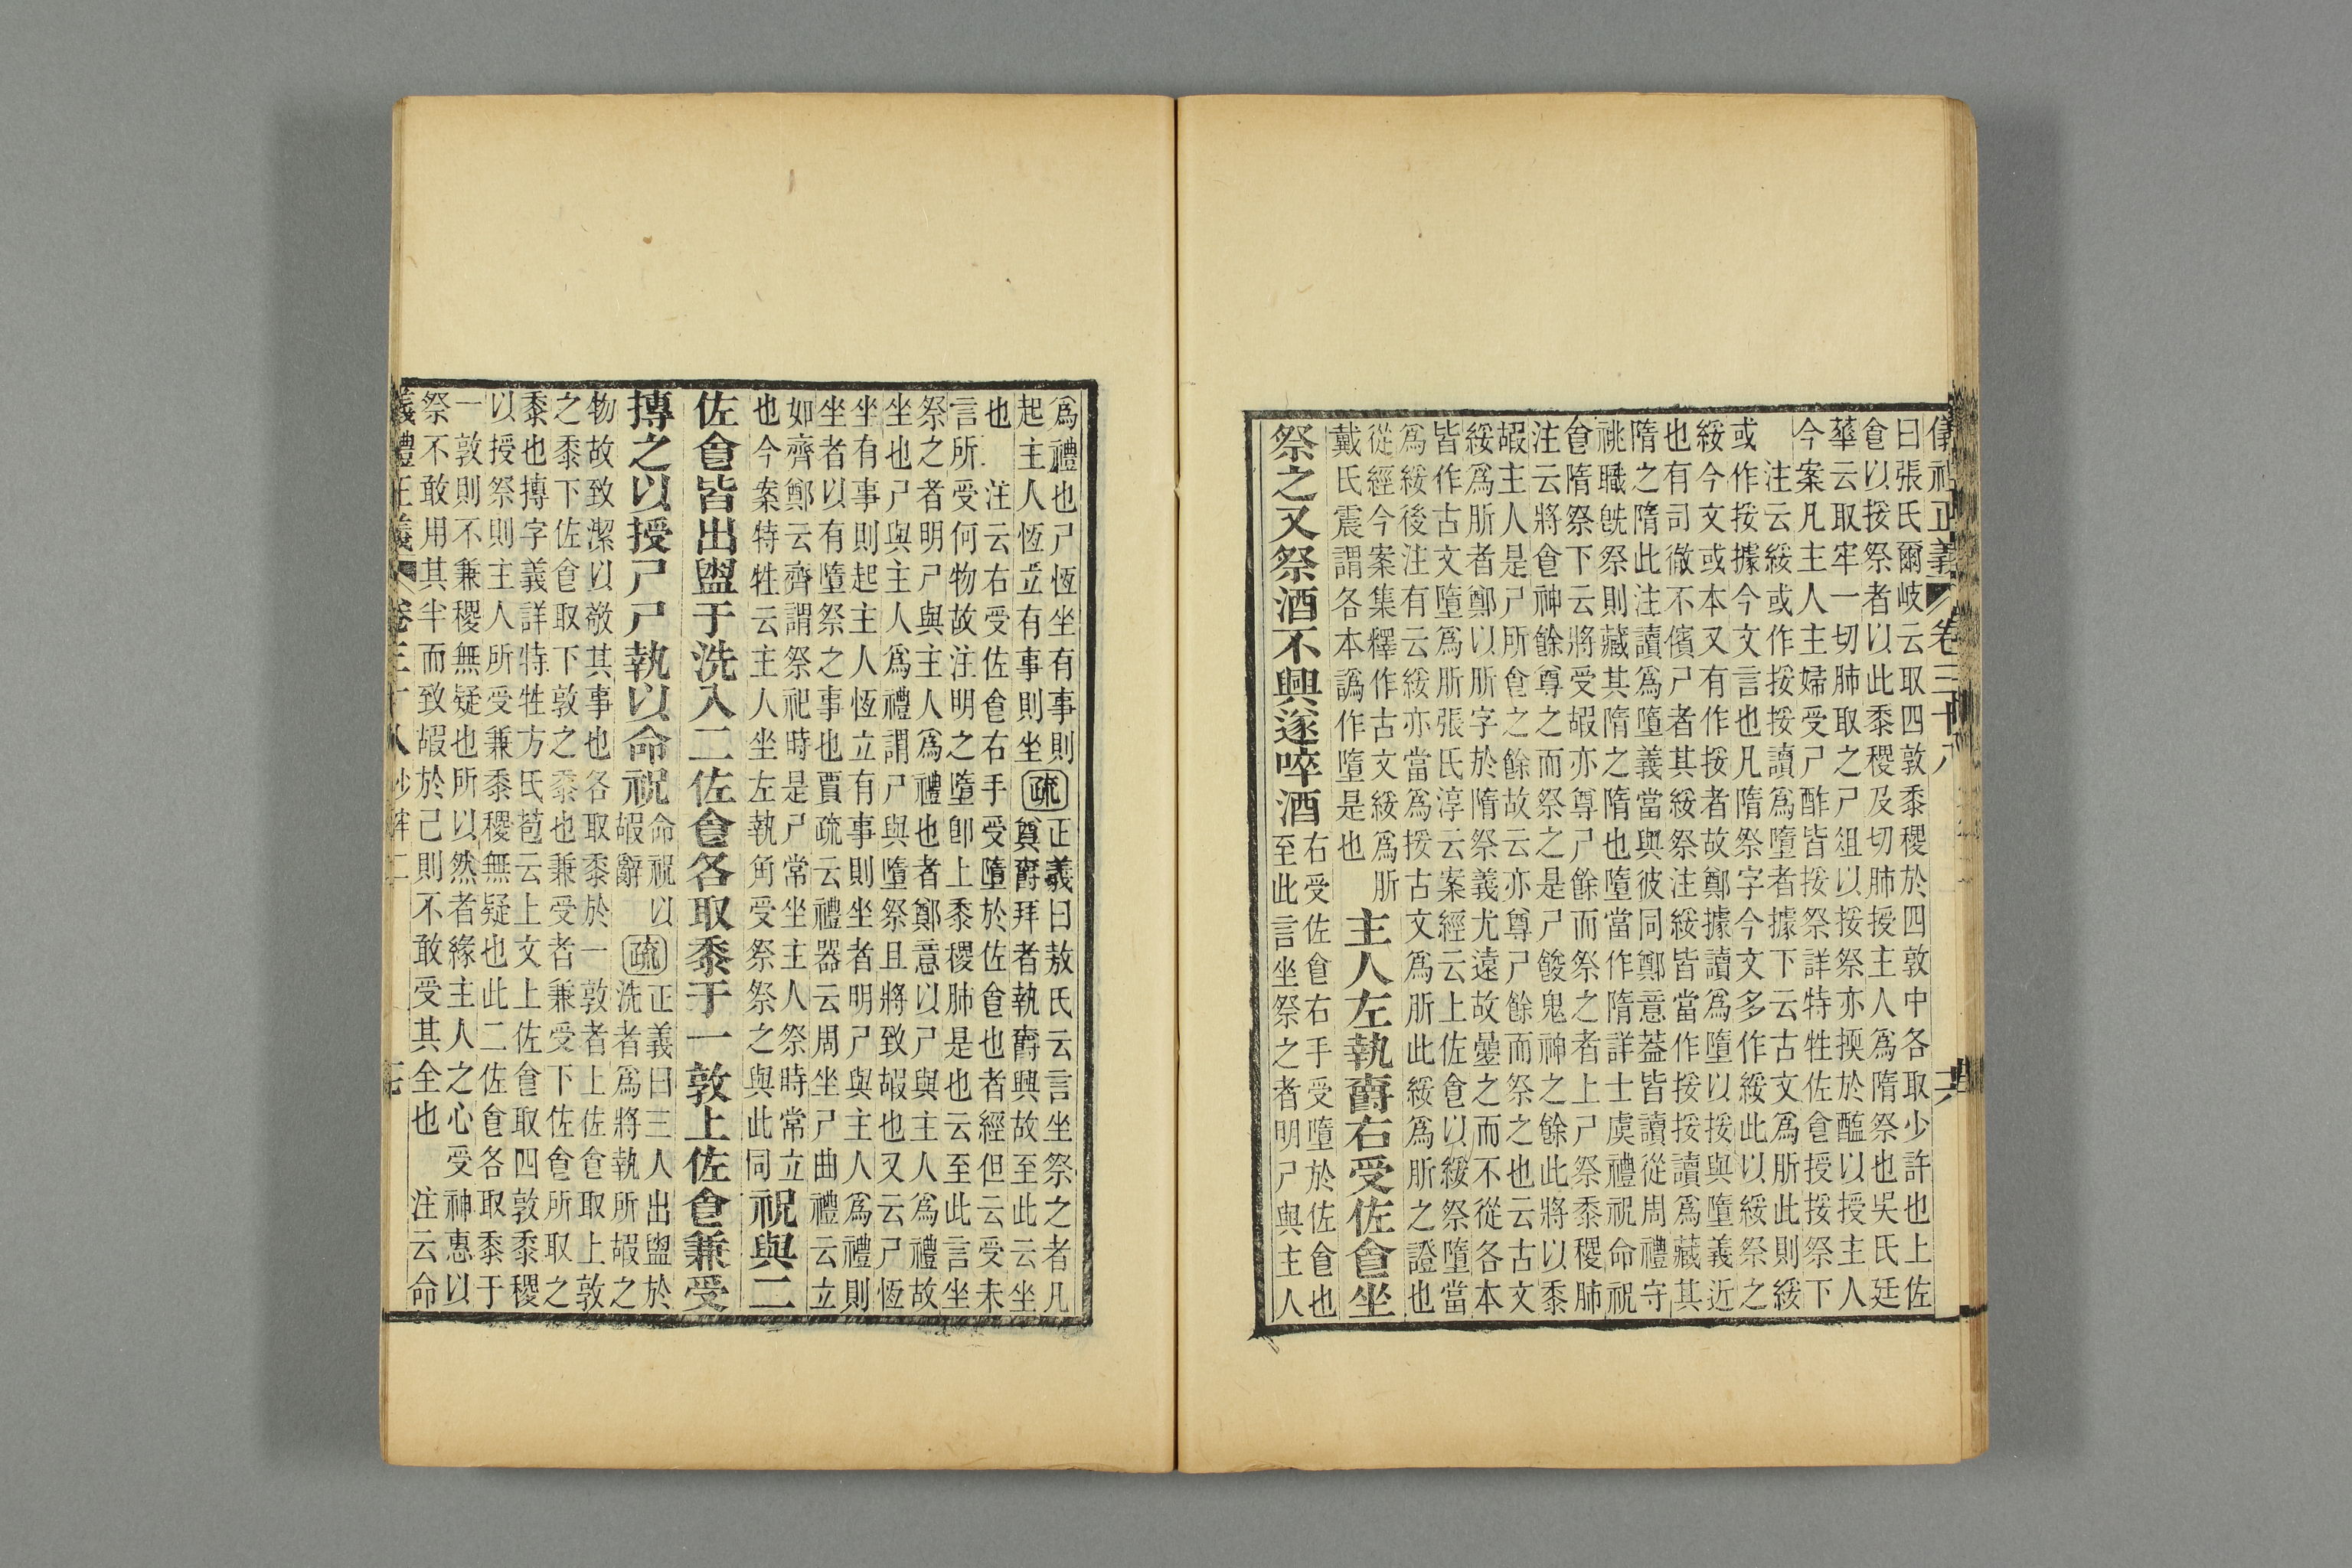 儀禮正義 卷三十八 六
曰張氏爾岐云取四敦黍稷於四敦中各取少許也上佐
食以挼祭者以此黍稷及切肺授主人爲隋祭也吳氏廷
華云取牢一切肺取之尸俎以挼祭亦擩於醢以授主人
今案凡主人主婦受尸酢皆挼祭詳特牲佐食授挼祭下
注云綏或作挼挼讀爲墮者據下云古文爲肵此則綏
或作挼據今文言也凡隋祭字今文多作綏此以綏祭之
綏今文或本又有作挼者故鄭據讀爲墮以挼與墮義近
也有司徹不儐尸者其綏祭注綏皆當作挼挼讀爲藏其
隋之隋此注讀爲墮義當與彼同鄭意蓋皆讀從周禮守
祧職旣祭則藏其隋之隋也墮當作隋詳士虞禮祝命祝
食隋祭下云將受嘏亦尊尸餘而祭之者上尸祭黍稷肺
注云將食神餘尊之而祭之是尸餕鬼神之餘此將以黍
嘏主人是尸所食之餘故云亦尊尸餘而祭之也云古文
綏爲肵者鄭以肵字於隋祭義尤遠故曡之而不從各本
皆作古文墮爲肵張氏淳云案經云上佐食以綏祭墮當
爲綏後注有云綏亦當爲挼古文爲肵此綏爲肵之證也
從經今案集釋作古文綏爲肵
戴氏震謂各本譌作墮是也
主人左執爵右受佐食坐
祭之又祭酒不興遂啐酒
右受佐食右手受墮於佐食也
至此言坐祭之者明尸與主人
爲禮也尸恆坐有事則
起主人恆立有事則坐
疏
正義曰敖氏云言坐祭之者凡
奠爵拜者執爵興故至此云坐
也 注云右受佐食右手受墮於佐食也者經但云受未
言所受何物故注明之墮卽上黍稷肺是也云至此言坐
祭之者明尸與主人爲禮也者鄭意以尸與主人爲禮故
坐也尸與主人爲禮謂尸與墮祭且將致嘏也又云尸恆
坐有事則起主人恆立有事則坐者明尸與主人爲禮則
坐者以有墮祭之事也賈疏云禮器云周坐尸曲禮云立
如齊鄭云齊謂祭祀時是尸常坐主人祭時常立
也今案特牲云主人坐左執角受祭祭之與此同
祝與二
佐食皆出盥于洗入二佐食各取黍于一敦上佐食兼受
摶之以授尸尸執以命祝
命祝以
嘏辭
疏
正義曰三人出盥於
洗者爲將執所嘏之
物故致潔以敬其事也各取黍於一敦者上佐食取上敦
之黍下佐食取下敦之黍也兼受者兼受下佐食所取之
黍也摶字義詳特牲方氏苞云上文上佐食取四敦黍稷
以授祭則主人所受兼黍稷無疑也此二佐食各取黍于
一敦則不兼稷無疑也所以然者緣主人之心受神惠以
祭不敢用其半而致嘏於己則不敢受其全也 注云命
義禮正義 卷三十八